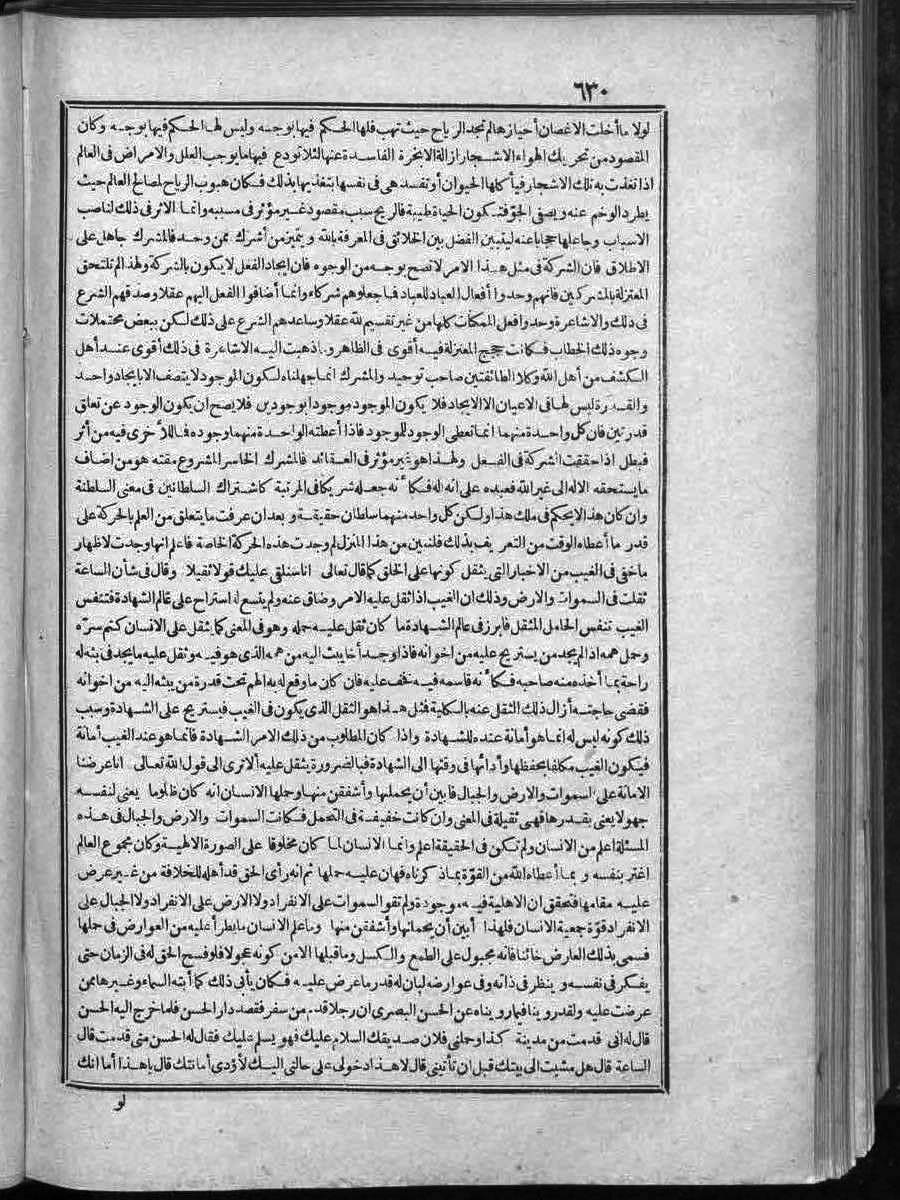 ٦٣٠
لولا ما أخلت الاغصان أحيازها لم تجد الرياح حيث تهب فلها الحكم فيها بوجه وليس لها الحكم فيها بوجه وكان
المقصود من تحريك الهواء الاشجار ازالة الابخرة الفاسدة عنها لئلا تودع فيها ما يوجب العلل والامراض فى العالم
اذا تغذت به تلك الاشجار فيأكلها الحيوان أو تفسد هى فى نفسها بتغذيها بذلك فكان هبوب الرياح لمصالح العالم حيث
يطرد الوخم عنه ويصفى الجوّ فتكون الحياة طيبة فالريح سبب مقصود غير مؤثر فى مسببه وانما الاثر فى ذلك لناصب
الاسباب وجاعلها حجابا عنه ليتبين الفضل بين الخلائق فى المعرفة بالله ويتميز من أشرك ممن وحد فالمشرك جاهل على
الاطلاق فان الشركة فى مثل هذا الامر لا تصح بوجه من الوجوه فان ايجاد الفعل لا يكون بالشركة ولهذا لم تلتحق
المعتزلة بالمشركين فانهم وحدوا أفعال العباد للعباد فما جعلوهم شركاء وانما أضافوا الفعل اليهم عقلا وصدقهم الشرع
فى ذلك والاشاعرة وحدوا فعل الممكنات كلها من غير تقسيم لله عقلا وساعدهم الشرع على ذلك لكن ببعض محتملات
وجوه ذلك الخطاب فكانت حجج المعتزلة فيه أقوى فى الظاهر وما ذهبت اليه الاشاعرة فى ذلك أقوى عند أهل
الكشف من أهل الله وكلا الطائفتين صاحب توحيد والمشرك انما جهلناه لكون الموجود لا يتصف الا بايجاد واحد
والقدرة ليس لها فى الاعيان الا الايجاد فلا يكون الموجود موجودا بوجودين فلا يصح ان يكون الوجود عن تعلق
قدرتين فان كل واحدة منهما انما تعطى الوجود للموجود فاذا أعطته الواحدة منهما وجوده فما للأخرى فيه من أثر
فبطل اذا حققت الشركة فى الفعل ولهذا هو غير مؤثر فى العقائد فالمشرك الخاسر المشروع مقته هو من اضاف
ما يستحقه الاله الى غير الله فعبده على انه اله فكأنه جعله شريكا فى المرتبة كاشتراك السلطانين فى معنى السلطنة
وان كان هذا لا يحكم فى ملك هذا ولكن كل واحد منهما سلطان حقيقة وبعد ان عرفت ما يتعلق من العلم بالحركة على
قدر ما أعطاه الوقت من التعريف بذلك فلنبين من هذا المنزل لم وجدت هذه الحركة الخاصة فاعلم انها وجدت لاظهار
ما خفى فى الغيب من الاخبار التى يثقل كونها على الخلق كما قال تعالى انا سنلقى عليك قولا ثقيلا وقال فى شأن الساعة
ثقلت فى السموات والارض وذلك ان الغيب اذا ثقل عليه الامر وضاق عنه ولم يتسع له استراح على عالم الشهادة فتنفس
الغيب تنفس الحامل المثقل فابرز فى عالم الشهادة ما كان ثقل عليه حمله وهو فى المعنى كما يثقل على الانسان كتم سرّه
وحمل همه اذا لم يجد من يستريح عليه من اخوانه فاذا وجد أخا يبث اليه من همه الذى هو فيه وثقل عليه ما يجد فى بثه له
راحة بما أخذه منه صاحبه فكأنه قاسمه فيه فخف عليه فان كان ما وقع له به الهم تحت قدرة من بثه اليه من اخوانه
فقضى حاجته أزال ذلك الثقل عنه بالكلية فمثل هذا هو الثقل الذى يكون فى الغيب فيستريح على الشهادة وسبب
ذلك كونه ليس له انما هو أمانة عنده للشهادة واذا كان المطلوب من ذلك الامر الشهادة فانما هو عند الغيب أمانة
فيكون الغيب مكلفا بحفظها وأدائها فى وقتها الى الشهادة فبالضرورة يثقل عليه ألا ترى الى قول الله تعالى انا عرضنا
الامانة على السموات والارض والجبال فابين أن يحملنها وأشفقن منها وحملها الانسان انه كان ظلوما يعنى لنفسه
جهولا يعنى بقدرها فهى ثقيلة فى المعنى وان كانت خفيفة فى التحمل فكانت السموات والارض والجبال فى هذه
المسئلة اعلم من الانسان ولم تكن فى الحقيقة اعلم وانما الانسان لما كان مخلوقا على الصورة الالهية وكان مجموع العالم
اغتر بنفسه وبما أعطاه الله من القوّة بما ذكرناه فهان عليه حملها ثم انه رأى الحق قد أهله للخلافة من غير عرض
عليه مقامها فتحقق ان الاهلية فيه موجودة ولم تقو السموات على الانفراد ولا الارض على الانفراد ولا الجبال على
الانفراد قوّة جمعية الانسان فلهذا أبين أن يحملنها وأشفقن منها وما علم الانسان ما يطرأ عليه من العوارض فى حملها
فسمى بذلك العارض خائنا فانه مجبول على الطمع والكسل وما قبلها الا من كونه عجولا فلو فسح الحق له فى الزمان حتى
يفكر فى نفسه وينظر فى ذاته وفى عوارضه لبان له قدر ما عرض عليه فكان يأبى ذلك كما أبته السماء وغيرها ممن
عرضت عليه ولقد روينا فيما رويناه عن الحسن البصرى ان رجلا قدم من سفر فقصد دار الحسن فلما خرج اليه الحسن
قال له انى قدمت من مدينة كذا وحملنى فلان صديقك السلام عليك فهو يسلم عليك فقال له الحسن متى قدمت قال
الساعة قال هل مشيت الى بيتك قبل ان تأتينى قال لا هذا دخولى على حالتى اليك لأؤدى أمانتك قال يا هذا أما انك
لو